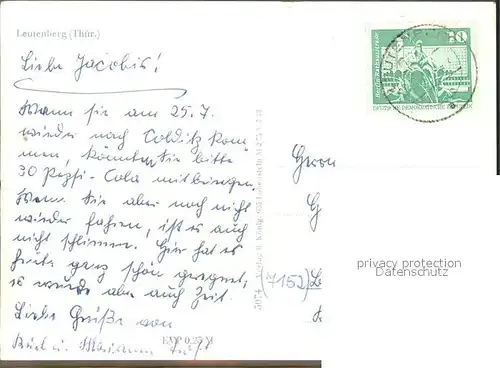 Leutenberg (Thür.)
Liebe Jacobis!
Wenn sie am 25.7.
wieder nach Colditz kom-
men, könnten Sie bitte
30 Pepsi-Cola mitbringen.
Wenn Sie aber noch nicht
wieder fahren, ist es auch
nicht schlimm. Hier hat es
heute ganz schön geregnet,
es wurde aber auch Zeit.
Liebe Grüße von
u. Marianne
EVP 0,25 M
10
DEUTSCHE DEMOKRATISCHE REPUBLIK
(7152)
privacy protection
Datenschutz